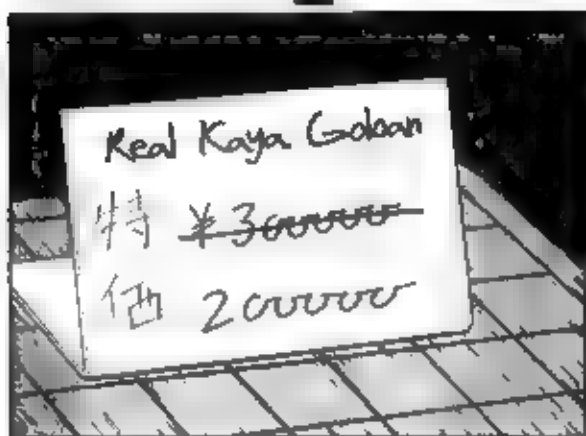 Real Kaya Goban
特 ¥300000
価 200000